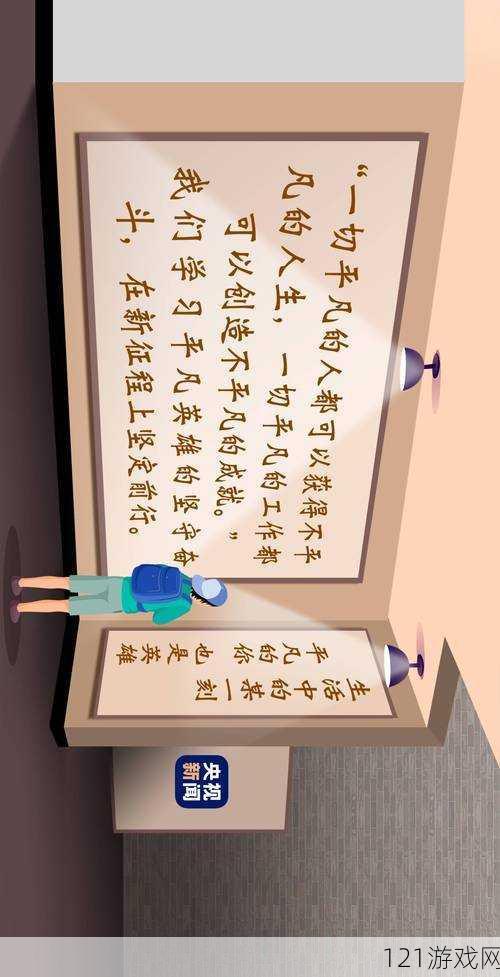 “一切平凡的人都可以获得不平
凡的人生，一切平凡的工作都
可以创造不平凡的成就。”
我们学习平凡英雄的坚守奋
斗，在新征程上坚定前行。
生活中的某一刻
平凡的你也是英雄
央视
新闻
121游戏网